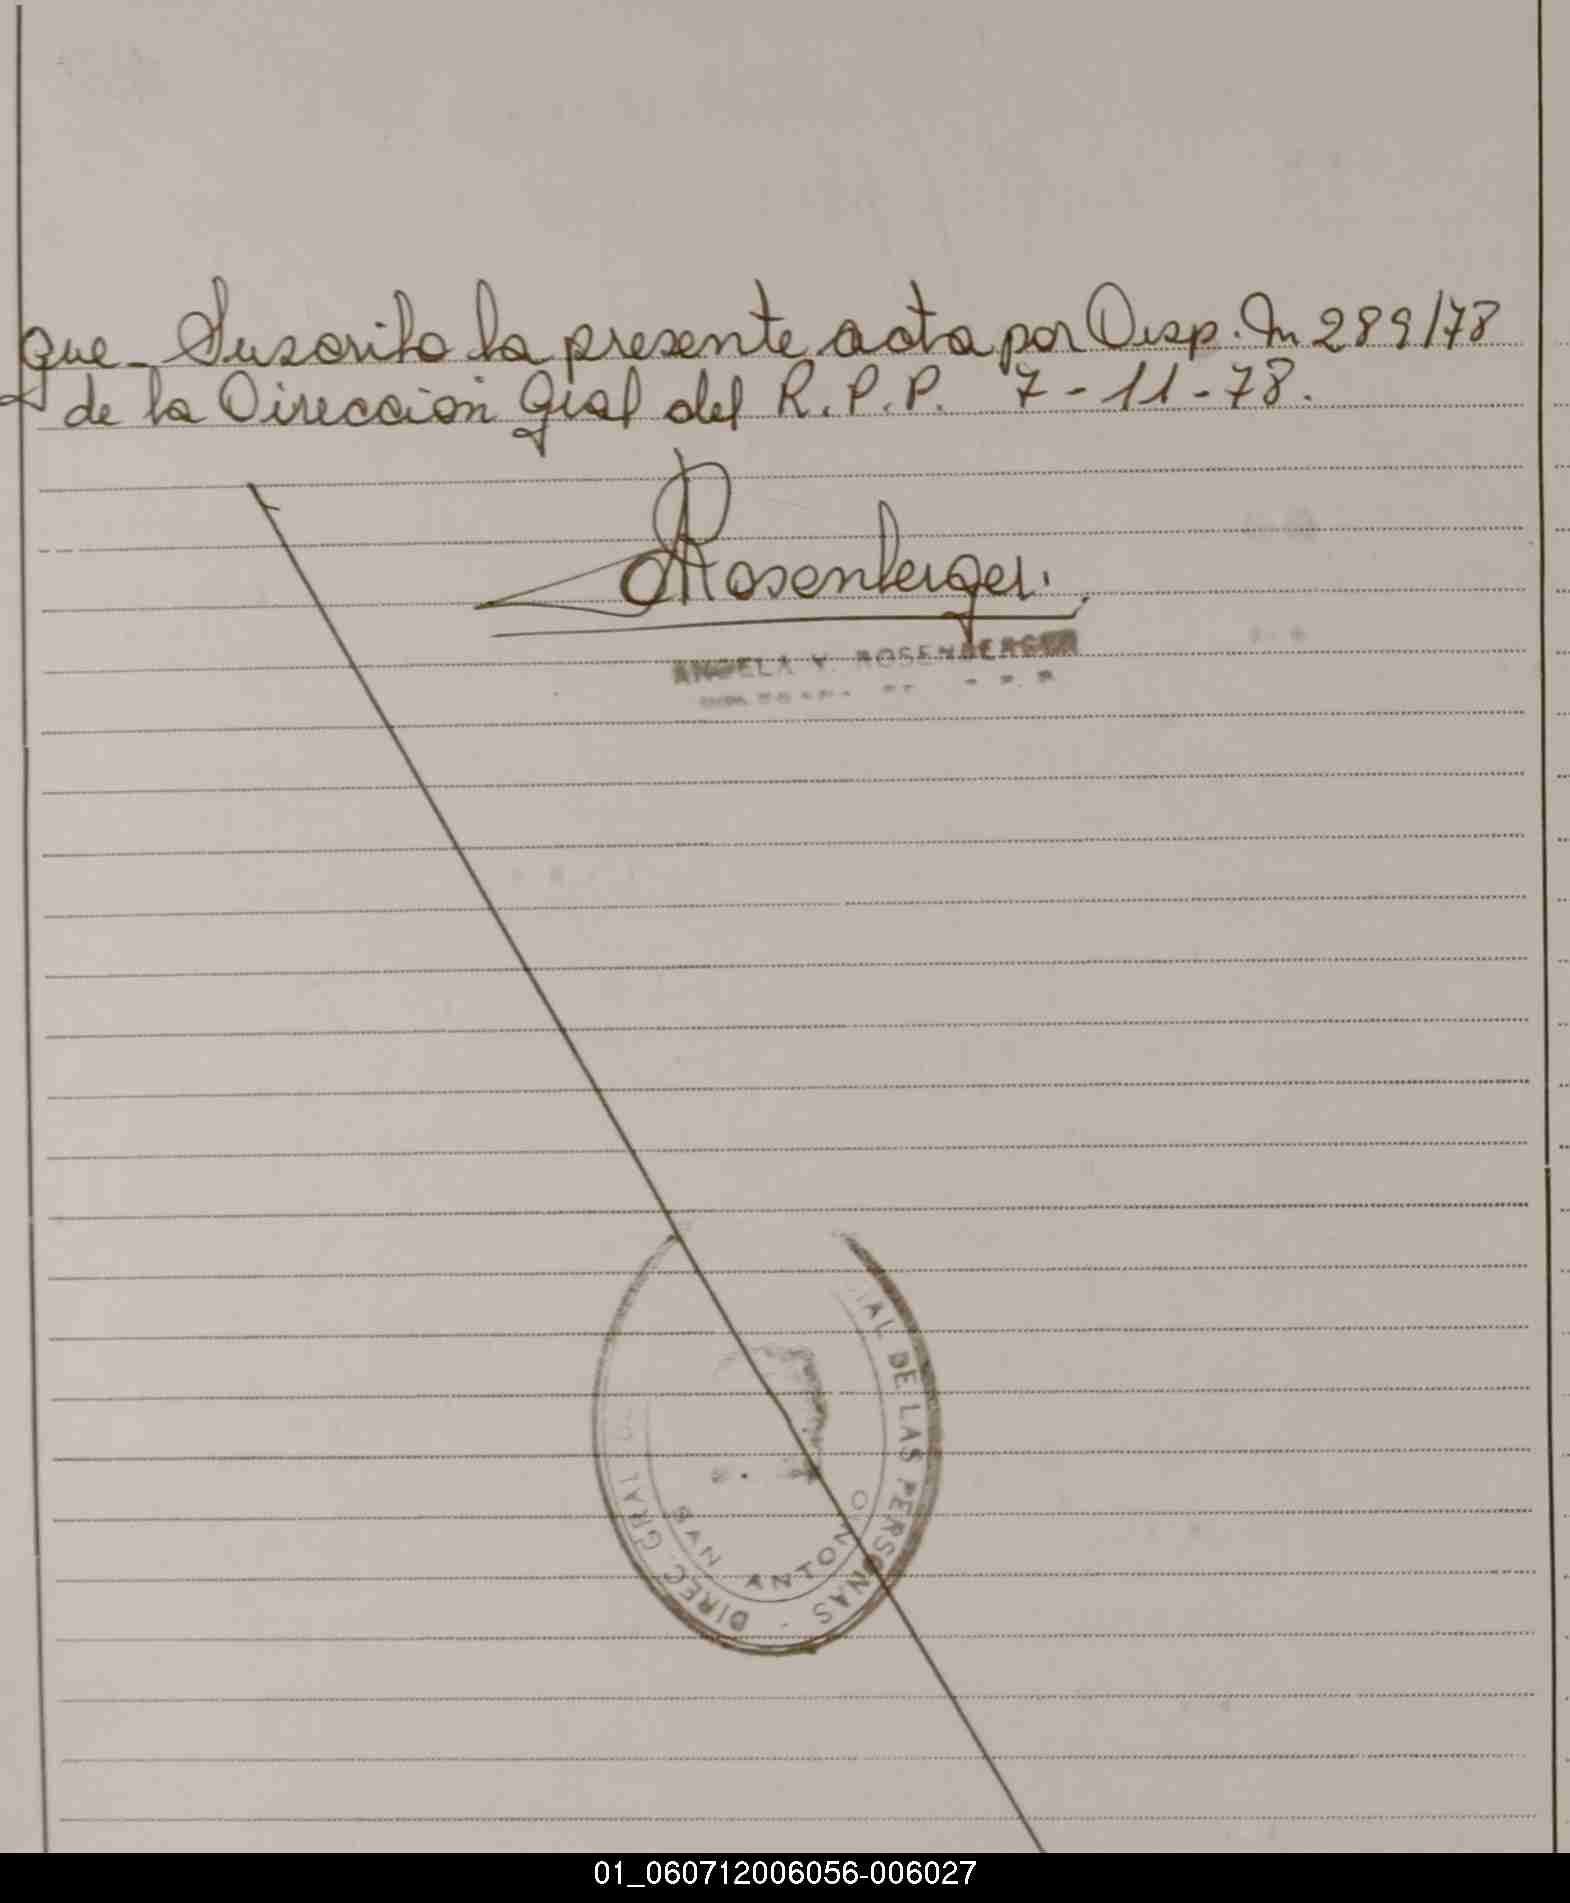 que - Suscribo la presente acta por Disp. Nº 289/78
de la Direccion Gral del R.P.P. 7-11-78.
ARosenberger.
ANGELA Y. ROSENBERGER
DIREC GRAL
AL DE LAS PERSONAS -
SAN ANTONIO
01_060712006056-006027